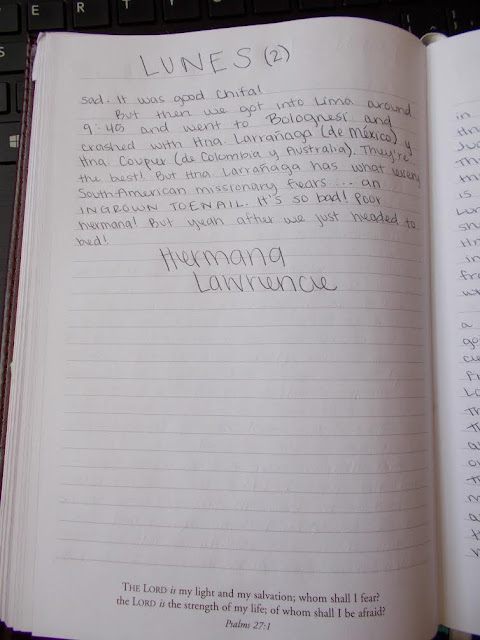 LUNES (2)
sad. It was good chifa!
But then we got into Lima around
9:45 and went to Bolognesi and
crashed with Hna Larrañaga (de México) y
Hna Couper (de Colombia y Australia). They're
the best! But Hna Larrañaga has what every
South American missionary fears.... an
INGROWN TOENAIL. It's so bad! Poor
hermana! But yeah after we just headed to
bed!
Hermana
Lawrence
THE LORD is my light and my salvation; whom shall I fear?
the LORD is the strength of my life; of whom shall I be afraid?
Psalms 27:1